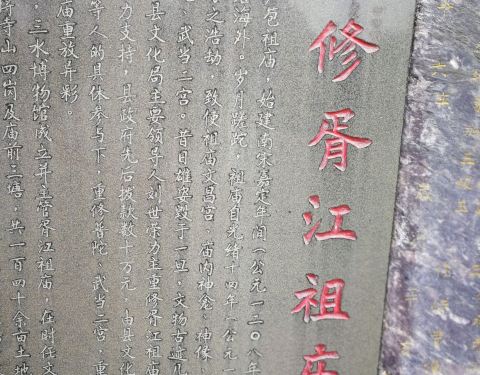 修胥江祖庙
包祖庙，始建南宋嘉定年间（公元一二〇八年
海外。岁月蹉跎，祖庙自光绪十四年（公元一
之浩劫，致使祖庙文昌宫、庙内神龛、神像、
、武当二宫。昔日雄姿毁于一旦，文物古迹几
县文化局主要领导人刘世荣力主重修胥江祖庙
力支持，县政府先后拨款数十万元，由县文化
等人的具体参与下，重修普陀、武当二宫，重
庙重放异彩。
，三水博物馆成立并主管胥江祖庙，在时任文
寺山四岗及庙前三塘，共一百四十余亩土地